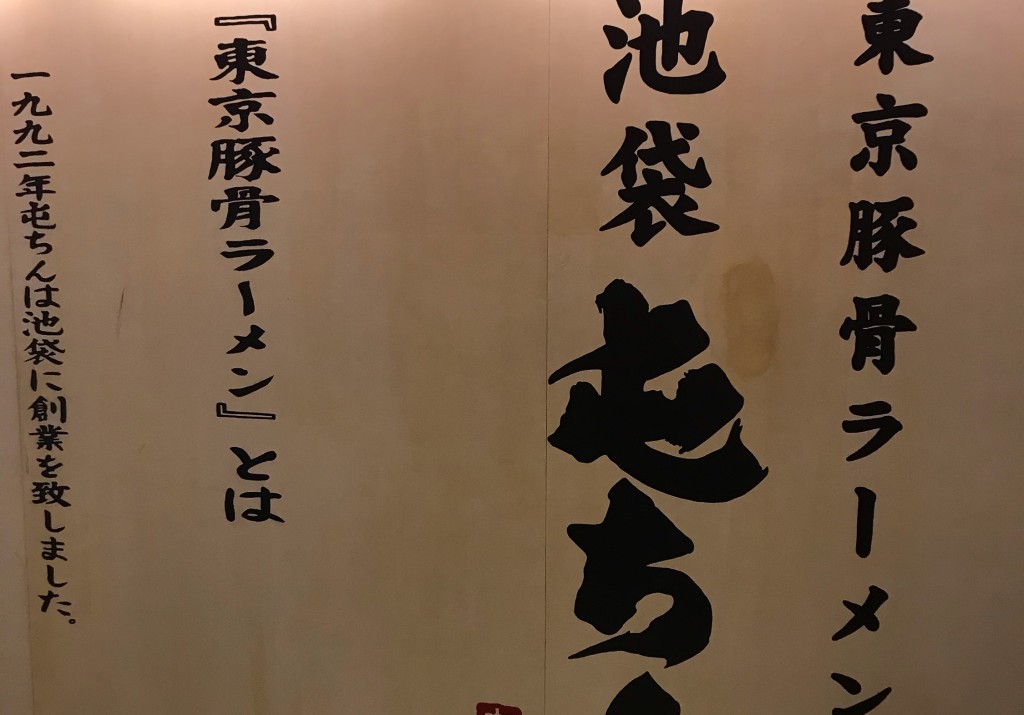 東京豚骨ラーメン
池袋屯ちん
『東京豚骨ラーメン』とは
一九九二年屯ちんは池袋に創業を致しました。